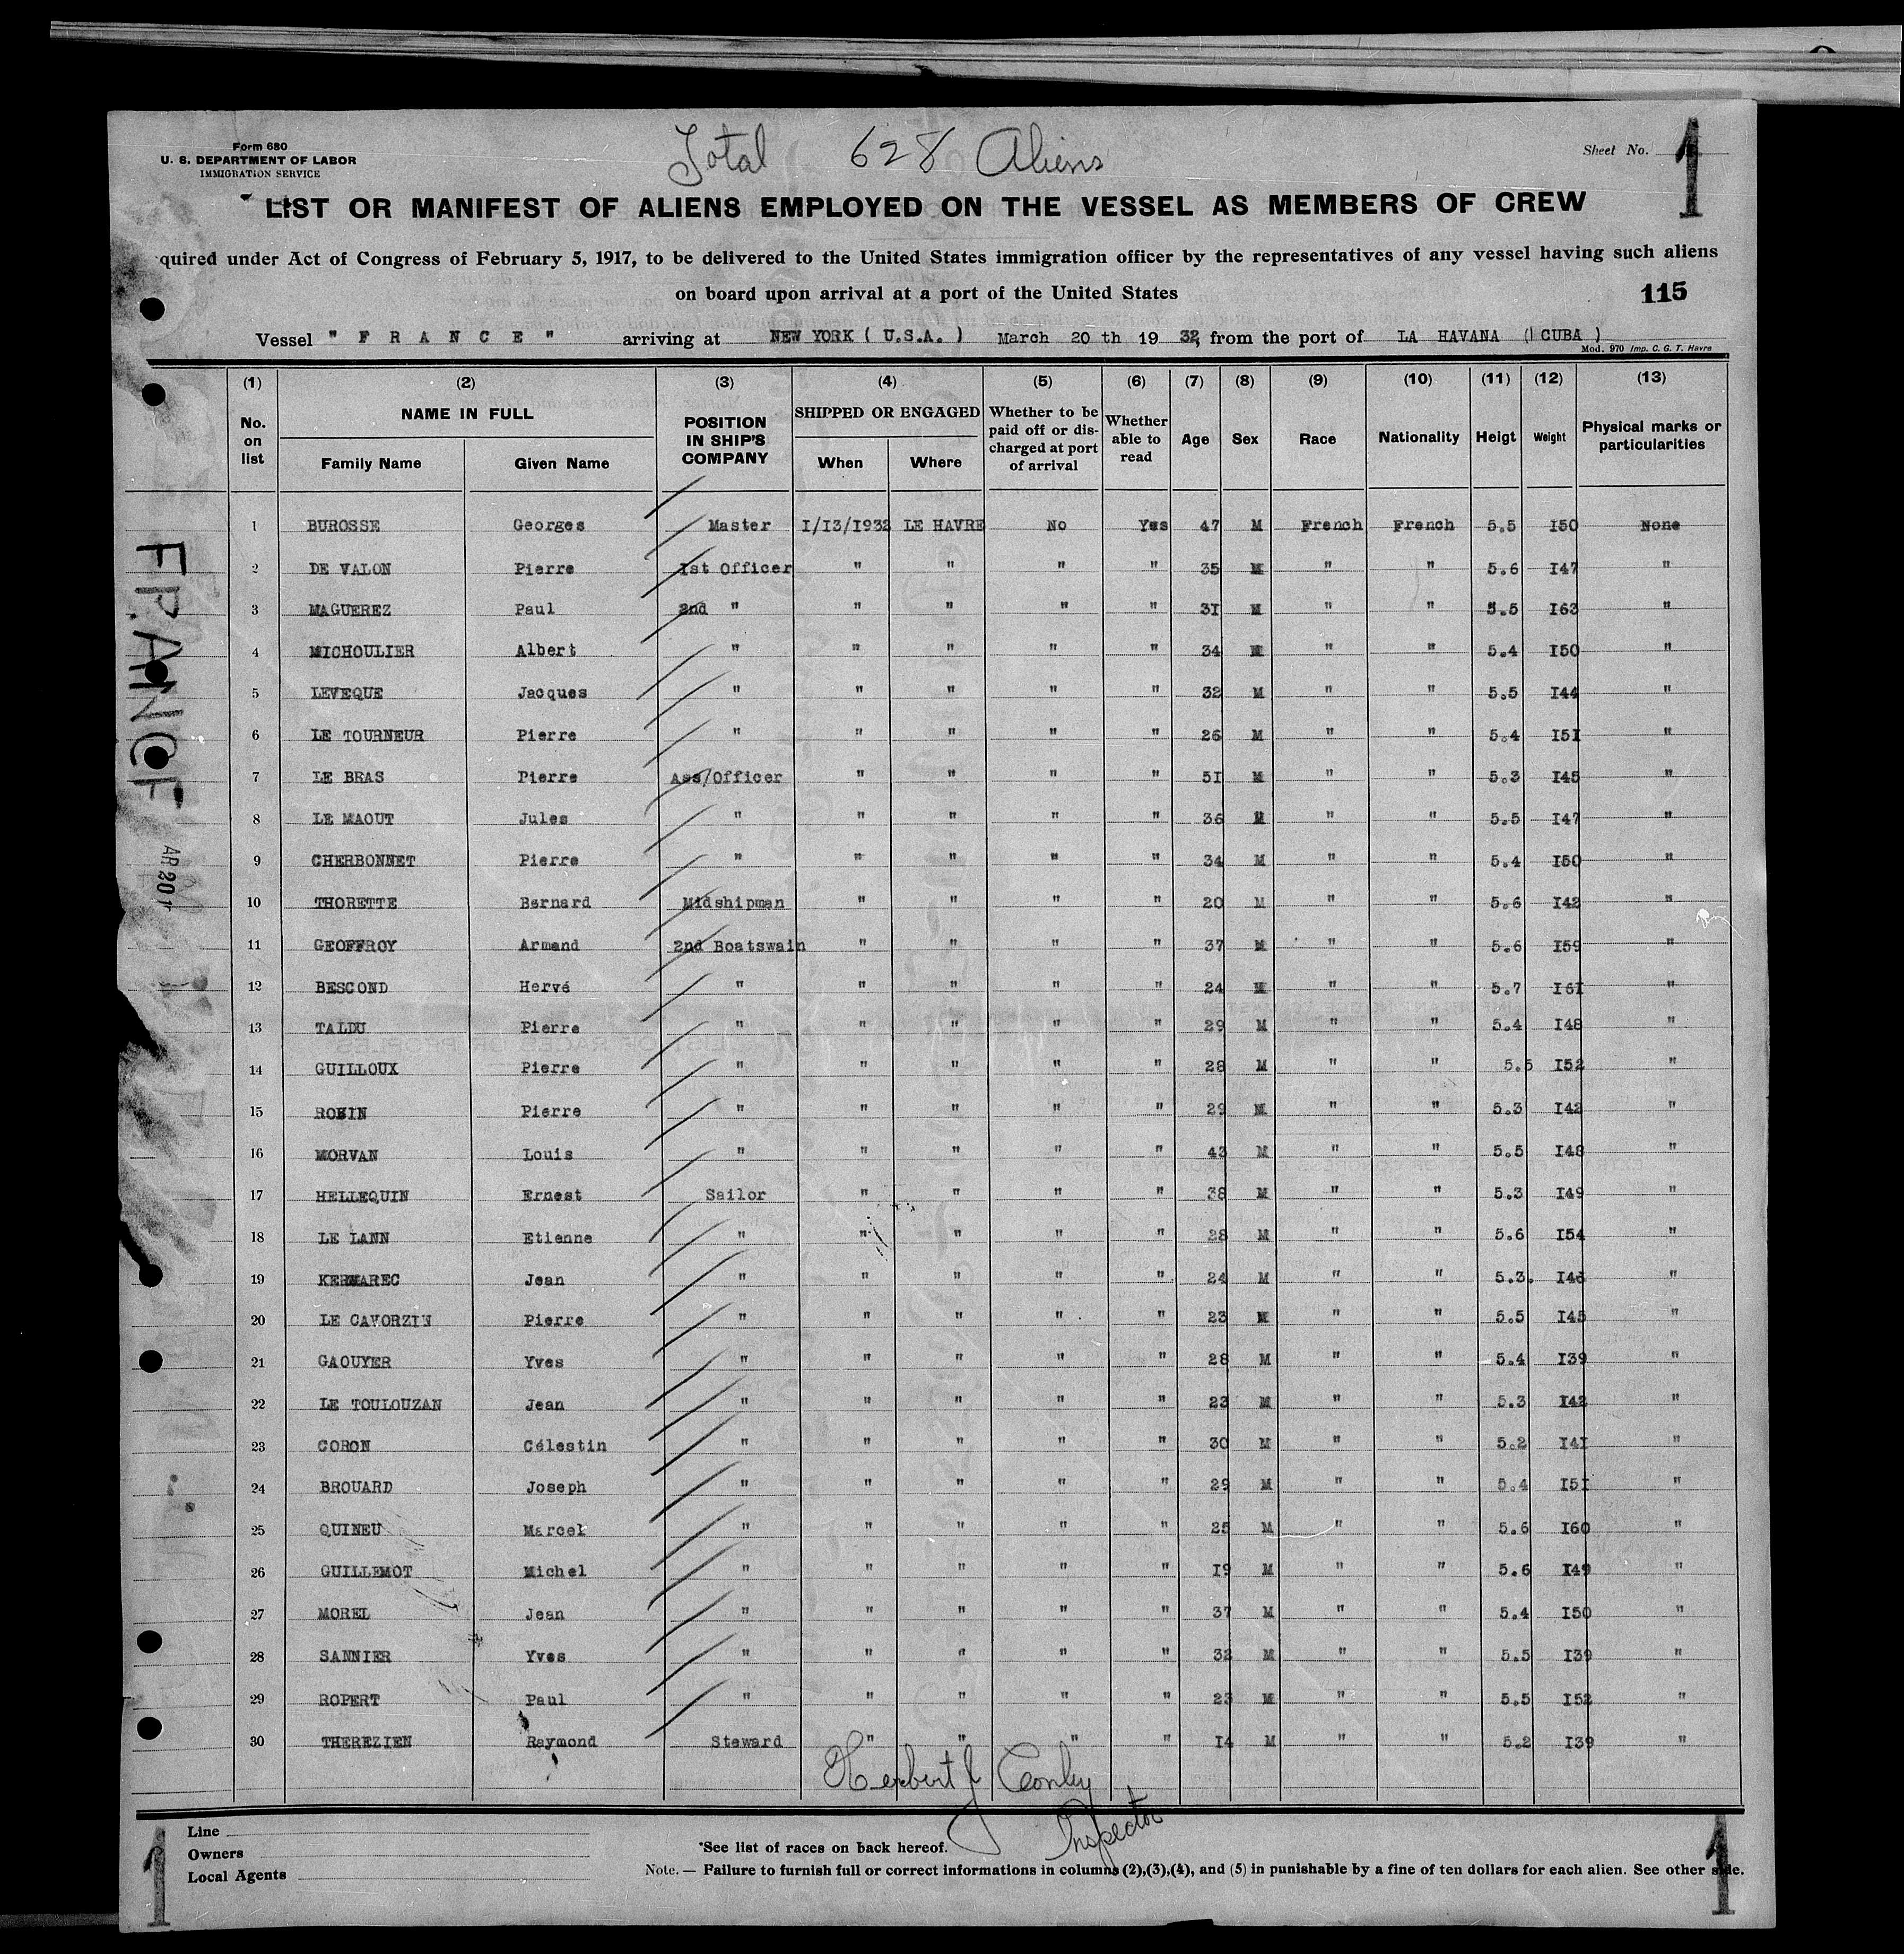 Total 628 Aliens
Form 680
U. S. DEPARTMENT OF LABOR
IMMIGRATION SERVICE
Sheet No. 1
LIST OR MANIFEST OF ALIENS EMPLOYED ON THE VESSEL AS MEMBERS OF CREW
quired under Act of Congress of February 5, 1917, to be delivered to the United States immigration officer by the representatives of any vessel having such aliens
on board upon arrival at a port of the United States
115
Vessel " F R A N C E " arriving at NEW YORK ( U.S.A. ) March 20 th 19 32, from the port of LA HAVANA ( CUBA )
Mod. 970 Imp. C. G. T. Havre
(1) (2) (3) (4) (5) (6) (7) (8) (9) (10) (11) (12) (13)
No. on list NAME IN FULL Family Name Given Name POSITION IN SHIP'S COMPANY SHIPPED OR ENGAGED When Where Whether to be paid off or discharged at port of arrival Whether able to read Age Sex Race Nationality Heigt Weight Physical marks or particularities
1 BUROSSE Georges Master I/I3/I932 LE HAVRE No Yes 47 M French French 5.5 I50 None
2 DE VALON Pierre Ist Officer " " " " 35 M " " 5.6 I47 "
3 MAGUEREZ Paul 2nd " " " " " 3I M " " 5.5 I63 "
4 MICHOULIER Albert " " " " " 34 M " " 5.4 I50 "
5 LEVEQUE Jacques " " " " " 32 M " " 5.5 I44 "
6 LE TOURNEUR Pierre " " " " " 26 M " " 5.4 I5I "
7 LE BRAS Pierre Ass/Officer " " " " 5I M " " 5.3 I45 "
8 LE MAOUT Jules " " " " " 36 M " " 5.5 I47 "
9 CHERBONNET Pierre " " " " " 34 M " " 5.4 I50 "
10 THORETTE Bernard Midshipman " " " " 20 M " " 5.6 I42 "
11 GEOFFROY Armand 2nd Boatswain " " " " 37 M " " 5.6 I59 "
12 BESCOND Hervé " " " " " 24 M " " 5.7 I6I "
13 TALDU Pierre " " " " " 29 M " " 5.4 I48 "
14 GUILLOUX Pierre " " " " " 28 M " " 5.5 I52 "
15 ROBIN Pierre " " " " " 29 M " " 5.3 I42 "
16 MORVAN Louis " " " " " 43 M " " 5.5 I48 "
17 HELLEQUIN Ernest Sailor " " " " 38 M " " 5.3 I49 "
18 LE LANN Etienne " " " " " 28 M " " 5.6 I54 "
19 KERMAREC Jean " " " " " 24 M " " 5.3. I46 "
20 LE CAVORZIN Pierre " " " " " 23 M " " 5.5 I45 "
21 GAOUYER Yves " " " " " 28 M " " 5.4 I39 "
22 LE TOULOUZAN Jean " " " " " 23 M " " 5.3 I42 "
23 CORON Célestin " " " " " 30 M " " 5.2 I4I "
24 BROUARD Joseph " " " " " 29 M " " 5.4 I5I "
25 QUINEU Marcel " " " " " 25 M " " 5.6 I60 "
26 GUILLEMOT Michel " " " " " I9 M " " 5.6 I49 "
27 MOREL Jean " " " " " 37 M " " 5.4 I50 "
28 SANNIER Yves " " " " " 32 M " " 5.5 I39 "
29 ROPERT Paul " " " " " 23 M " " 5.5 I52 "
30 THEREZIEN Raymond Steward " " " " I4 M " " 5.2 I39 "
Herbert J Conley
Inspector
FRANCE
Line
Owners
Local Agents
*See list of races on back hereof.
Note. — Failure to furnish full or correct informations in columns (2),(3),(4), and (5) in punishable by a fine of ten dollars for each alien. See other side.
1
1